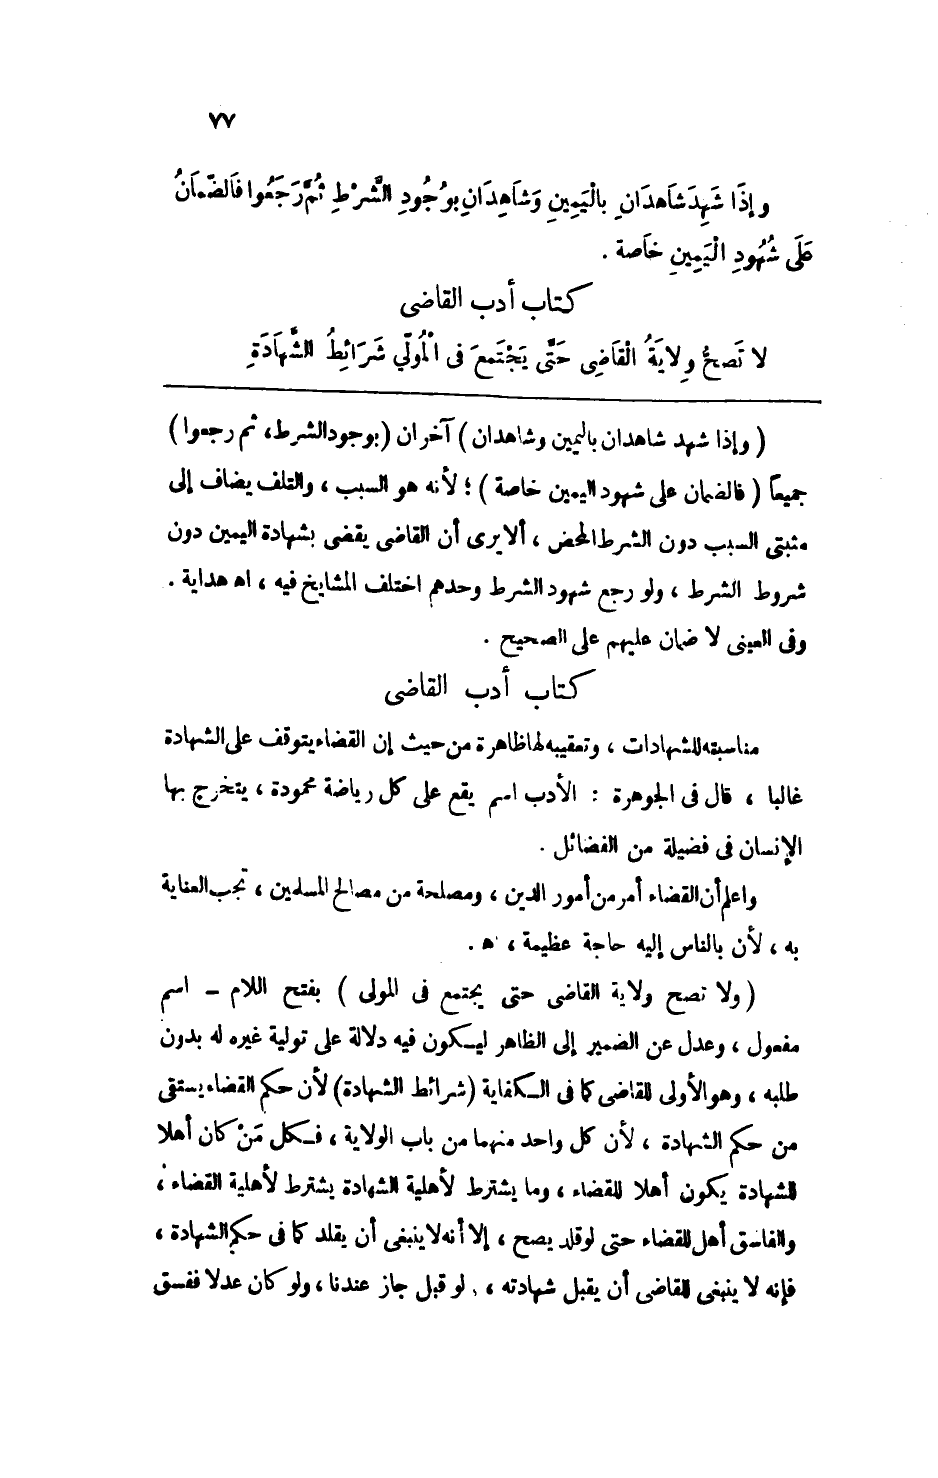 ٧٧
وإذَا شَهِدَ شَاهدَانِ بِالْيَمِينِ وَشَاهِدَانِ بوُجُودِ الشَّرْطِ ثُمَّ رَجَعُوا فَالضَّمَانُ
عَلَى شُهُودِ الْيَمِينِ خَاصة .
كتاب أدب القاضى
لا تَصحُّ وِلايَةُ الْقَاضِى حَتَّى يَجْتَمعَ فى الْمُوَلّي شَرَائِطُ الشَّهَادَةِ
( وإذا شهد شاهدان باليمين وشاهدان ) آخران ( بوجود الشرط ، ثم رجعوا )
جميعاً ( فالضمان على شهود اليمين خاصة ) ؛ لأنه هو السبب ، والتلف يضاف إلى
مثبتى السبب دون الشرط المحض ، ألا يرى أن القاضى يقضى بشهادة اليمين دون
شروط الشرط ، ولو رجع شهود الشرط وحدهم اختلف المشايخ فيه ، اه هداية .
وفى العينى لا ضمان عليهم على الصحيح .
كتاب أدب القاضى
مناسبته للشهادات ، وتعقيبه لها ظاهرة من حيث إن القضاء يتوقف على الشهادة
غالبا ، قال فى الجوهرة : الأدب اسم يقع على كل رياضة محمودة ، يتخرج بها
الإنسان فى فضيلة من الفضائل .
واعلم أن القضاء أمر من أمور الدين ، ومصلحة من مصالح المسلمين ، تجب العناية
به ، لأن بالناس إليه حاجة عظيمة ، اه .
( ولا تصح ولاية القاضى حتى يجتمع فى المولى ) بفتح اللام – اسم
مفعول ، وعدل عن الضمير إلى الظاهر ليكون فيه دلالة على تولية غيره له بدون
طلبه ، وهو الأولى للقاضى كما فى الكفاية ( شرائط الشهادة ) لأن حكم القضاء يستقى
من حكم الشهادة ، لأن كل واحد منهما من باب الولاية ، فكل مَنْ كان أهلا
للشهادة يكون أهلا للقضاء ، وما يشترط لأهلية الشهادة يشترط لأهلية القضاء ،
والفاسق أهل للقضاء حتى لو قلد يصح ، إلا أنه لا ينبغى أن يقلد كما فى حكم الشهادة ،
فإنه لا ينبغى للقاضى أن يقبل شهادته ، لو قبل جاز عندنا ، ولو كان عدلا ففسق